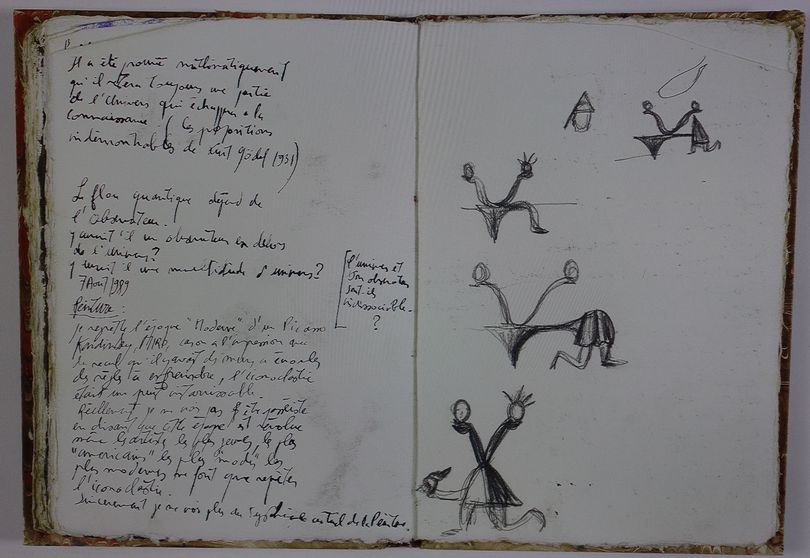 Il a été prouvé mathématiquement
qu'il restera toujours une partie
de l'Univers qui échappera à la
connaissance (les propositions
indémontrables de Kurt Gödel (1931)
Le flou quantique dépend de
l'Observateur.
y aurait il un observateur en dehors
de l'univers?
y aurait il une multitude d'univers?
7 Août 1989
[l'univers et
son observateur
sont-ils
indissociable-
?
Peinture:
je regrette l'époque "Moderne" d'un Picasso
Kandinsky, Miró, car on a l'impression que
qu'il y avait des murs à
des règles à enfreindre, l'iconoclastie
était un puit intarissable.
Réellement je ne vois pas
en disant que cette époque est révolue
même les artistes les plus jeunes, les plus
"américains" les plus "modes" les
plus modernes ne font que répéter
l'iconoclastie.
Sincèrement je ne vois plus de la peinture.